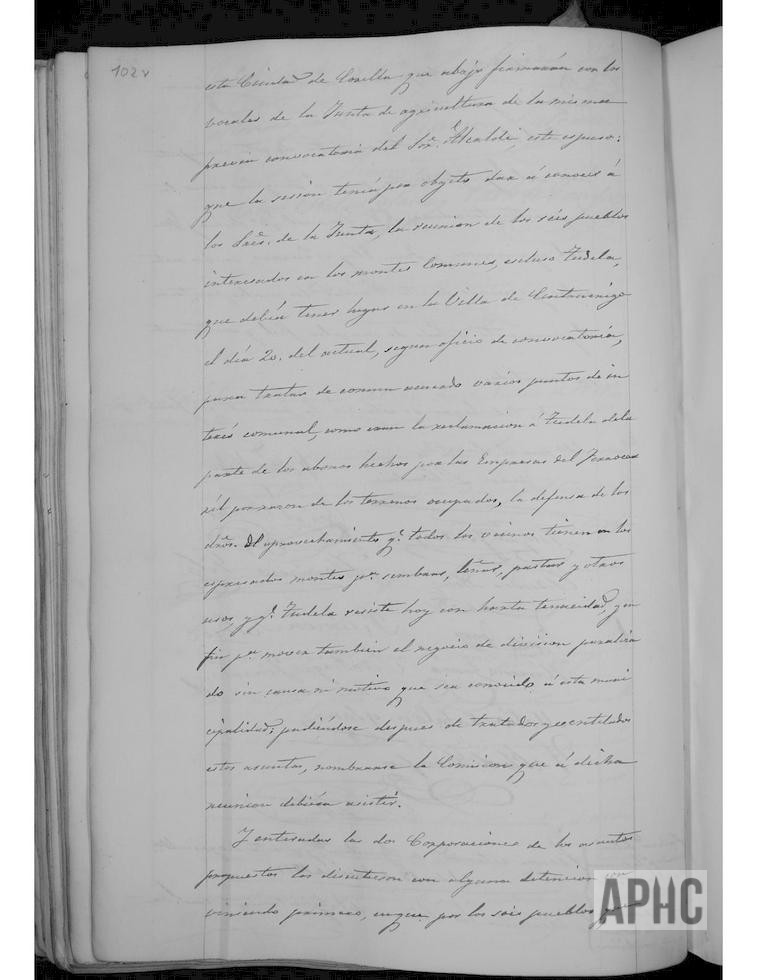 102v
esta Ciudad de Corella que abajo firmarán con los
vocales de la Junta de agricultura de la misma
previa convocatoria del Sor. Alcalde, este espuso:
que la sesion tenia por objeto dar á conocer á
los Sres. de la Junta, la reunion de los seis pueblos
interesados en los montes Comunes, escluso Tudela,
que debia tener lugar en la Villa de Cintruénigo
el dia 20. del actual, segun oficio de convocatoria,
para tratar de comun acuerdo varios puntos de in
terés comunal, como eran la reclamacion á Tudela de la
parte de los abonos hechos por las Empresas del Ferrocar
ril por razon de los terrenos ocupados, la defensa de los
dros. del aprovechamiento q.e todos los vecinos tienen en los
espresados montes p.a sembrar, leñar, pastar y otros
usos, y q.e Tudela resiste hoy con harta tenacidad, y en
fin p.a mover tambien el negocio de division paraliza
do sin causa ni motivo que sea conocido á esta muni
cipalidad; pudiéndose despues de tratados y ventilados
estos asuntos, nombrarse la Comision que á dicha
reunion debiera asistir.
Y enteradas las dos Corporaciones de los asuntos
propuestos los discutieron con alguna detencion con
viniendo primero, en que por los seis pueblos
APHC